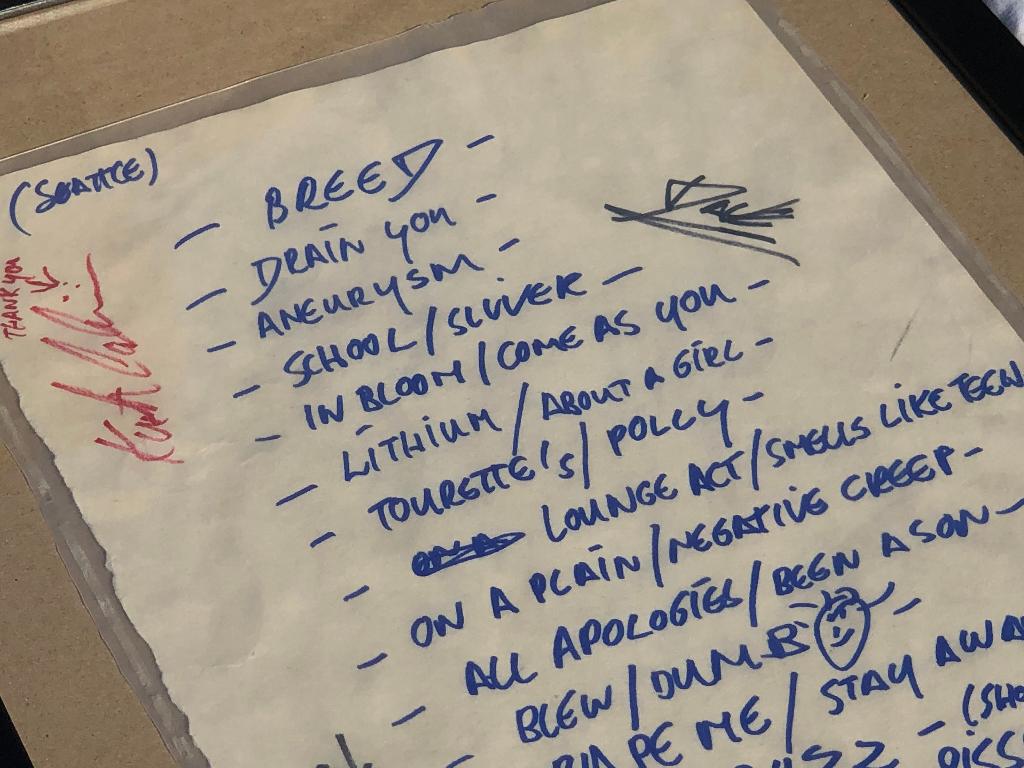 (SEATTLE)
- BREED -
- DRAIN YOU -
- ANEURYSM -
- SCHOOL/SLIVER -
- IN BLOOM/COME AS YOU -
- LITHIUM/ABOUT A GIRL -
- TOURETTE'S/POLLY -
- LOUNGE ACT/SMELLS LIKE TEEN
- ON A PLAIN/NEGATIVE CREEP -
- ALL APOLOGIES/BEEN A SON -
- BLEW/DUMB -
- RAPE ME/STAY AWA
- (SH
DISS
THANK YOU
Kurt Cobain
Dave